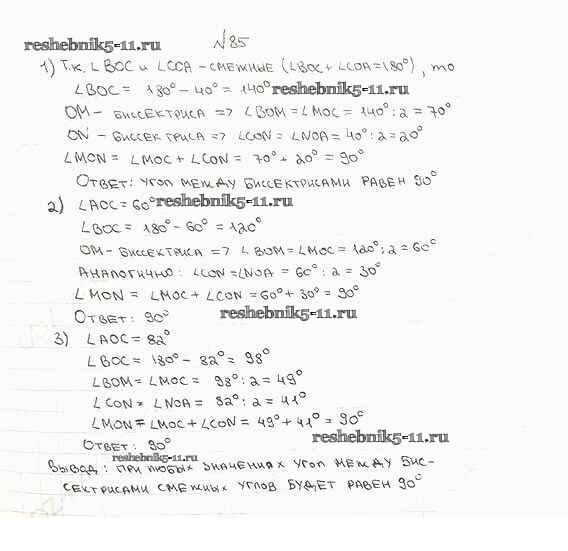 reshebnik5-11.ru №85
1) Т.к. ∠BOC и ∠COA - смежные (∠BOC + ∠COA = 180°), то
∠BOC = 180° - 40° = 140° reshebnik5-11.ru
OM - биссектриса => ∠BOM = ∠MOC = 140° : 2 = 70°
ON - биссектриса => ∠CON = ∠NOA = 40° : 2 = 20°
∠MON = ∠MOC + ∠CON = 70° + 20° = 90°
Ответ: угол между биссектрисами равен 90°
2) ∠AOC = 60° reshebnik5-11.ru
∠BOC = 180° - 60° = 120°
OM - биссектриса => ∠BOM = ∠MOC = 120° : 2 = 60°
Аналогично: ∠CON = ∠NOA = 60° : 2 = 30°
∠MON = ∠MOC + ∠CON = 60° + 30° = 90°
Ответ: 90° reshebnik5-11.ru
3) ∠AOC = 82°
∠BOC = 180° - 82° = 98°
∠BOM = ∠MOC = 98° : 2 = 49°
∠CON = ∠NOA = 82° : 2 = 41°
∠MON = ∠MOC + ∠CON = 49° + 41° = 90°
reshebnik5-11.ru
Ответ: 90°
reshebnik5-11.ru
Вывод: при любых значениях угол между бис-
сектрисами смежных углов будет равен 90°